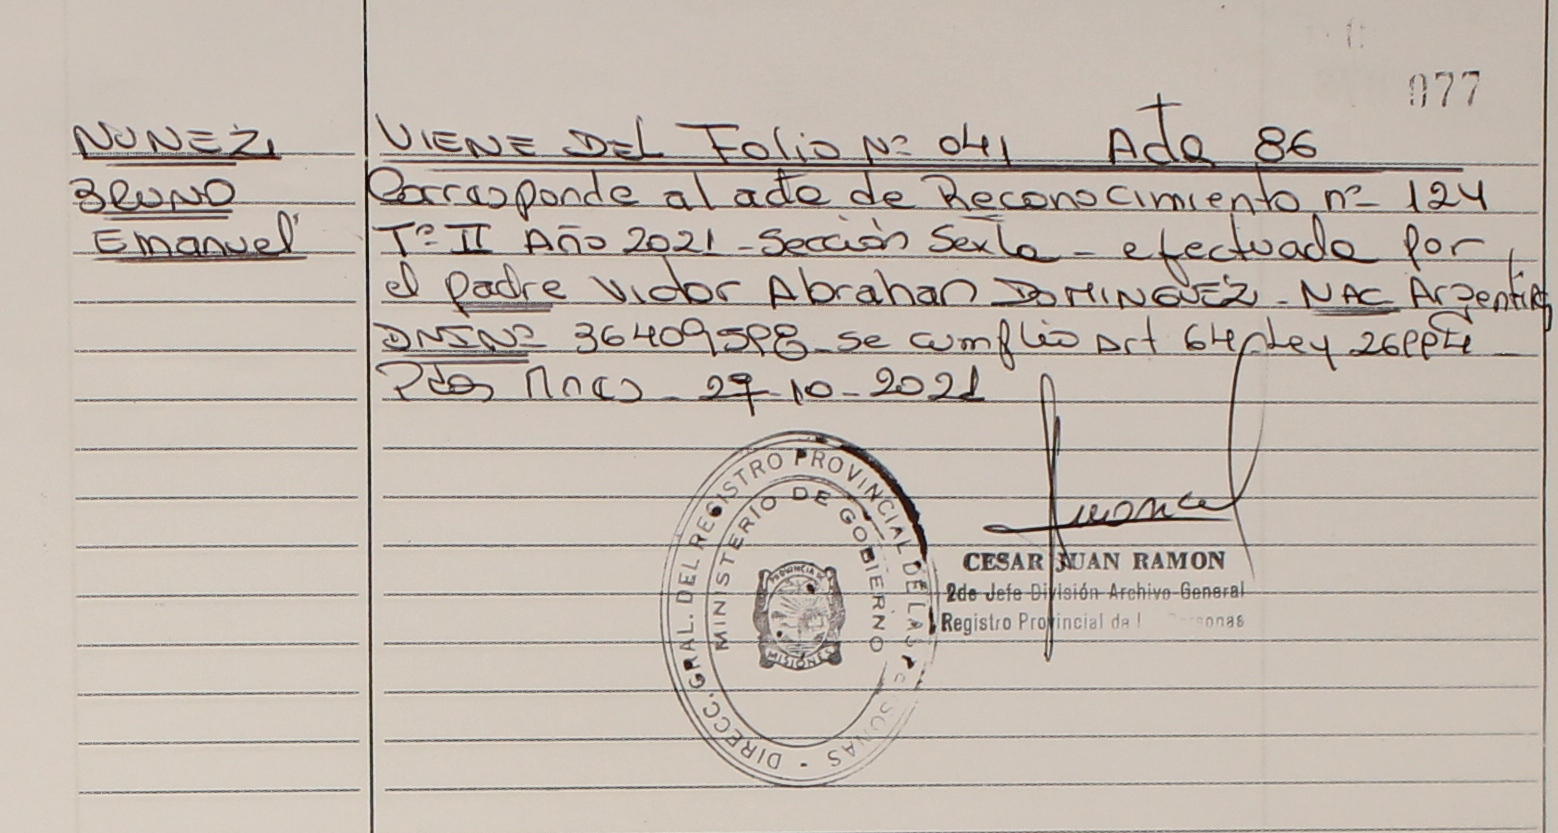 077
NUÑEZ,
BRUNO
Emanuel
VIENE DEL Folio Nº 041 Acta 86
Corresponde al acta de Reconocimiento nº 124
Tº II Año 2021 - Sección Sexta - efectuada por
el padre Victor Abrahan DOMINGUEZ - NAC Argentina
DNI Nº 36409598 - se cumplio Art 64 Ley 26994 -
Pdas Mnes - 27-10-2021
DIRECC. GRAL. DEL REGISTRO PROVINCIAL DE LAS PERSONAS
MINISTERIO DE GOBIERNO
PROVINCIA DE
MISIONES
CESAR JUAN RAMON
2do Jefe División Archivo General
Registro Provincial de l Personas